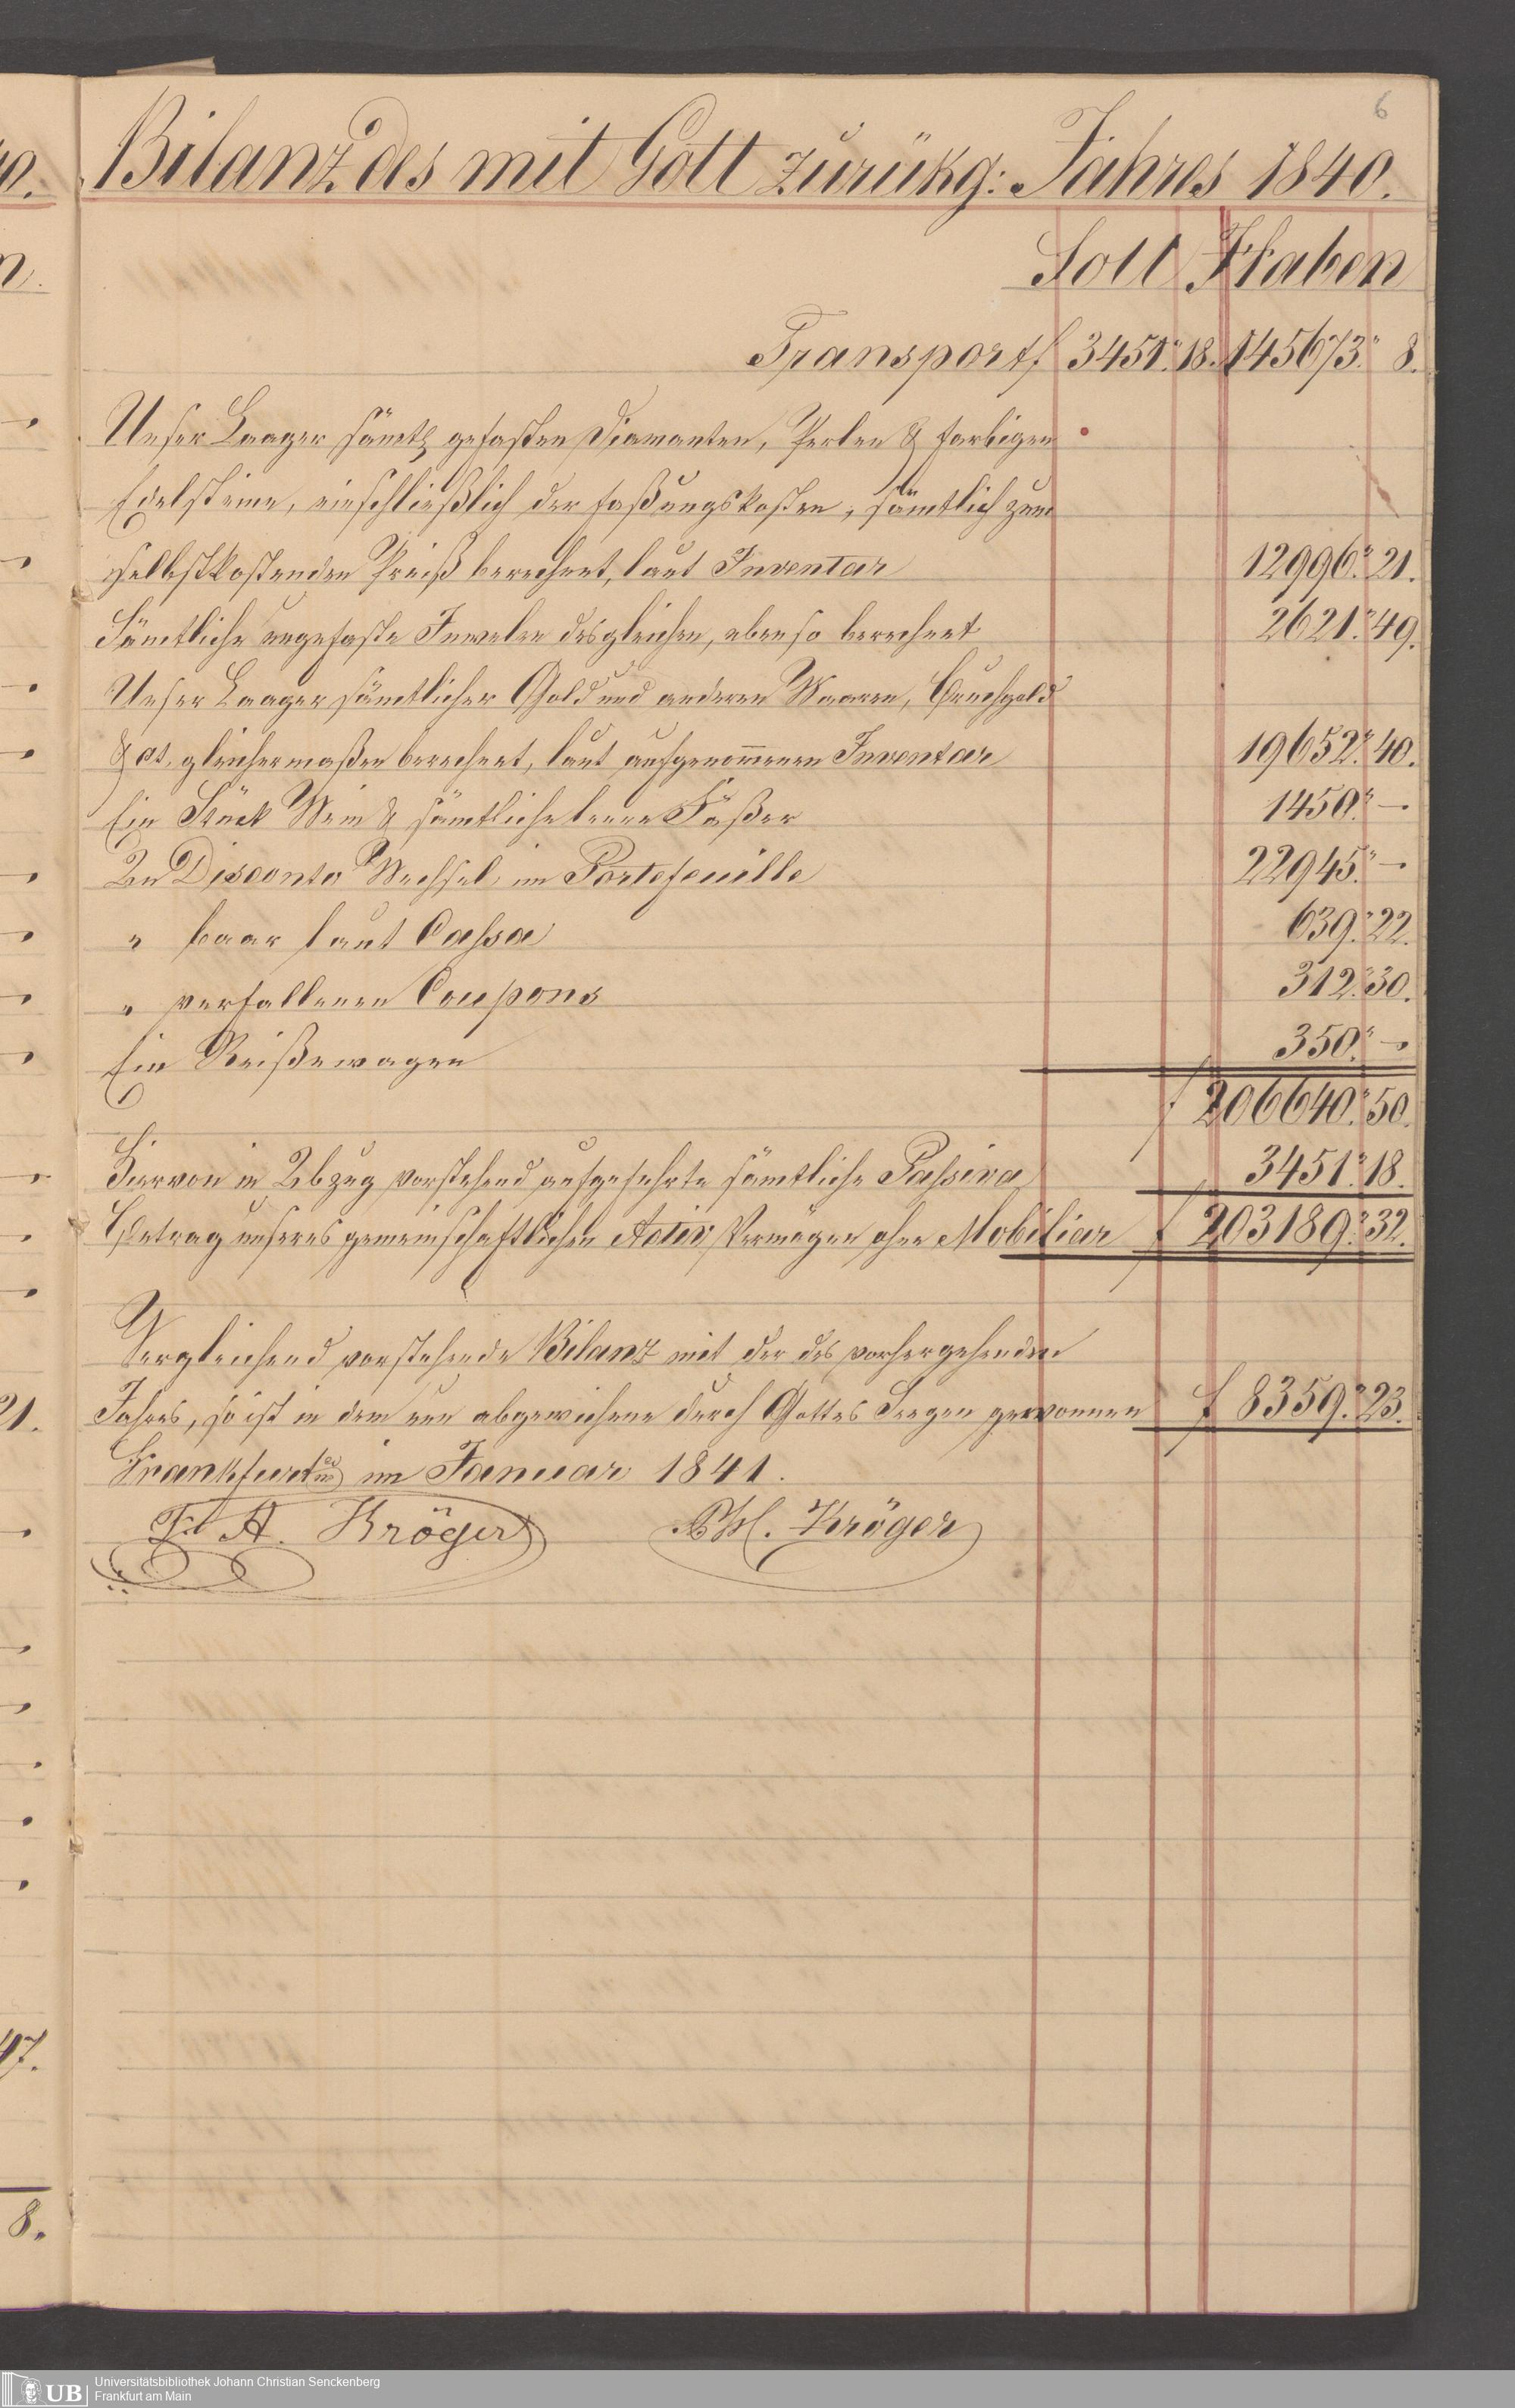 6
Bilanz des mit Gott zurükg: Jahres 1840.
Soll Haben
Transport f 3451." 18. 145673." 8.
Unser Laager sämtl. gefasten Diamanten, Perlen & farbigen
Edelsteine, einschließlich der Faßungskosten, sämtlich zum
selbstkostenden Preiß berechnet, laut Inventar 12996." 21.
Sämtliche ungefaste Juwelen desgleichen, ebenso berechnet 2621." 49.
Unser Laager sämtlicher Gold und anderen Waaren, Bruchgold
& ct. gleichermaßen berechnet, laut aufgenommenen Inventar 19652." 40.
Ein Stück Wein & sämtliche leere Fäßer 1450." —
An Disconto Wechsel im Portefeuille 22945." —
" baar laut Cassa 639." 22.
" verfallenen Coupons 312." 30.
Ein Reißewagen 350." —
f 206640." 50.
Hiervon in Abzug vorstehend aufgeführte sämtliche Passiva 3451." 18.
Betrag unseres gemeinschaftlichen Activ Vermögen ohne Mobiliar f 203189." 32.
Vergleichend vorstehende Bilanz mit der des vorhergehenden
Jahres, so ist in dem nun abgewichene durch Gottes Seegen gewonnen f 8359." 23.
Frankfurt a/m im Januar 1841.
F. A. Kröger Kröger
21.
47.
8.
UB Universitätsbibliothek Johann Christian Senckenberg
Frankfurt am Main